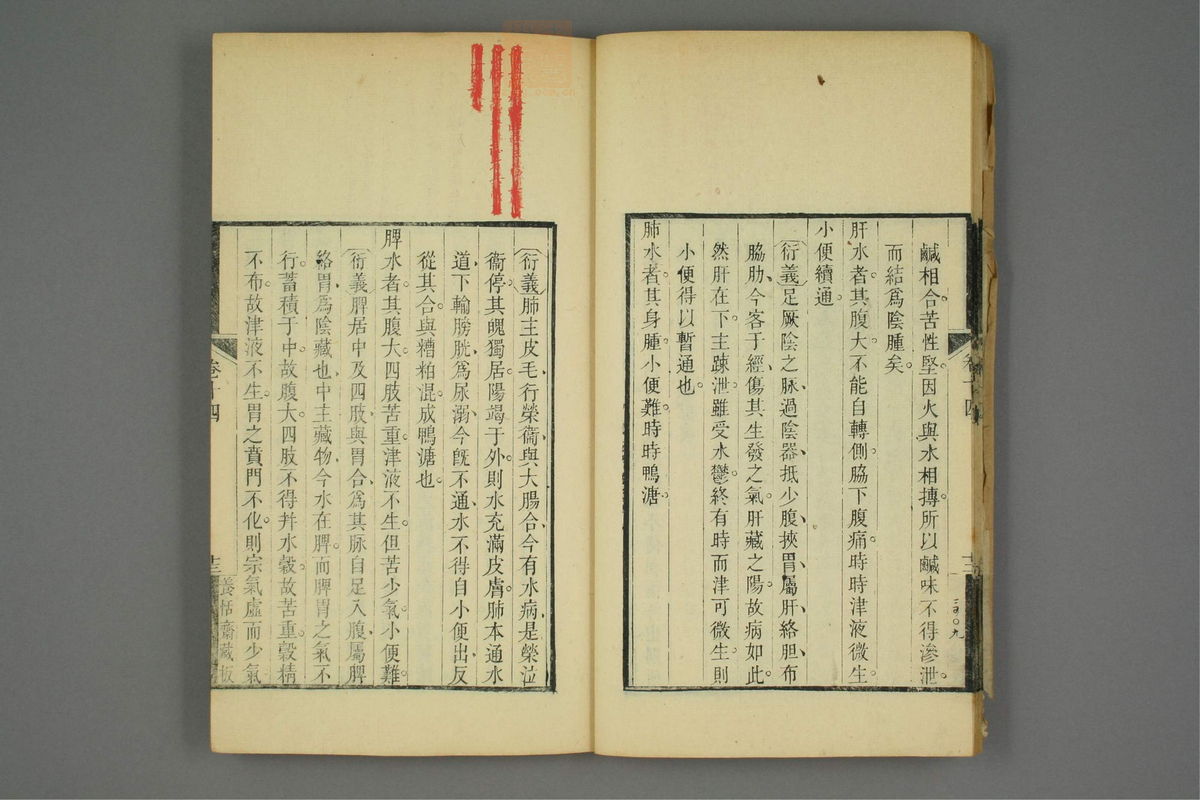 鹹相合苦性堅因火與水相摶所以鹹味不得滲泄
而結爲陰腫矣
肝水者其腹大不能自轉側脇下腹痛時時津液微生
小便續通
衍義足厥陰之脉過陰器抵少腹挾胃屬肝絡胆布
脇肋今客于經傷其生發之氣肝藏之陽故病如此
然肝在下主疎泄雖受水鬱終有時而津可微生則
小便得以暫通也
肺水者其身腫小便難時時鴨溏
衍義肺主皮毛行榮衞與大腸合今有水病是榮泣
衞停其魄獨居陽竭于外則水充滿皮膚肺本通水
道下輸膀胱爲尿溺今旣不通水不得自小便出反
從其合與糟粕混成鴨溏也
脾水者其腹大四肢苦重津液不生但苦少氣小便難
衍義脾居中及四肢與胃合爲其脉自足入腹屬脾
絡胃爲陰藏也中主藏物今水在脾而脾胃之氣不
行蓄積于中故腹大四肢不得幷水穀故苦重穀精
不布故津液不生胃之賁門不化則宗氣虛而少氣
卷十四
十三
養恬齋藏板